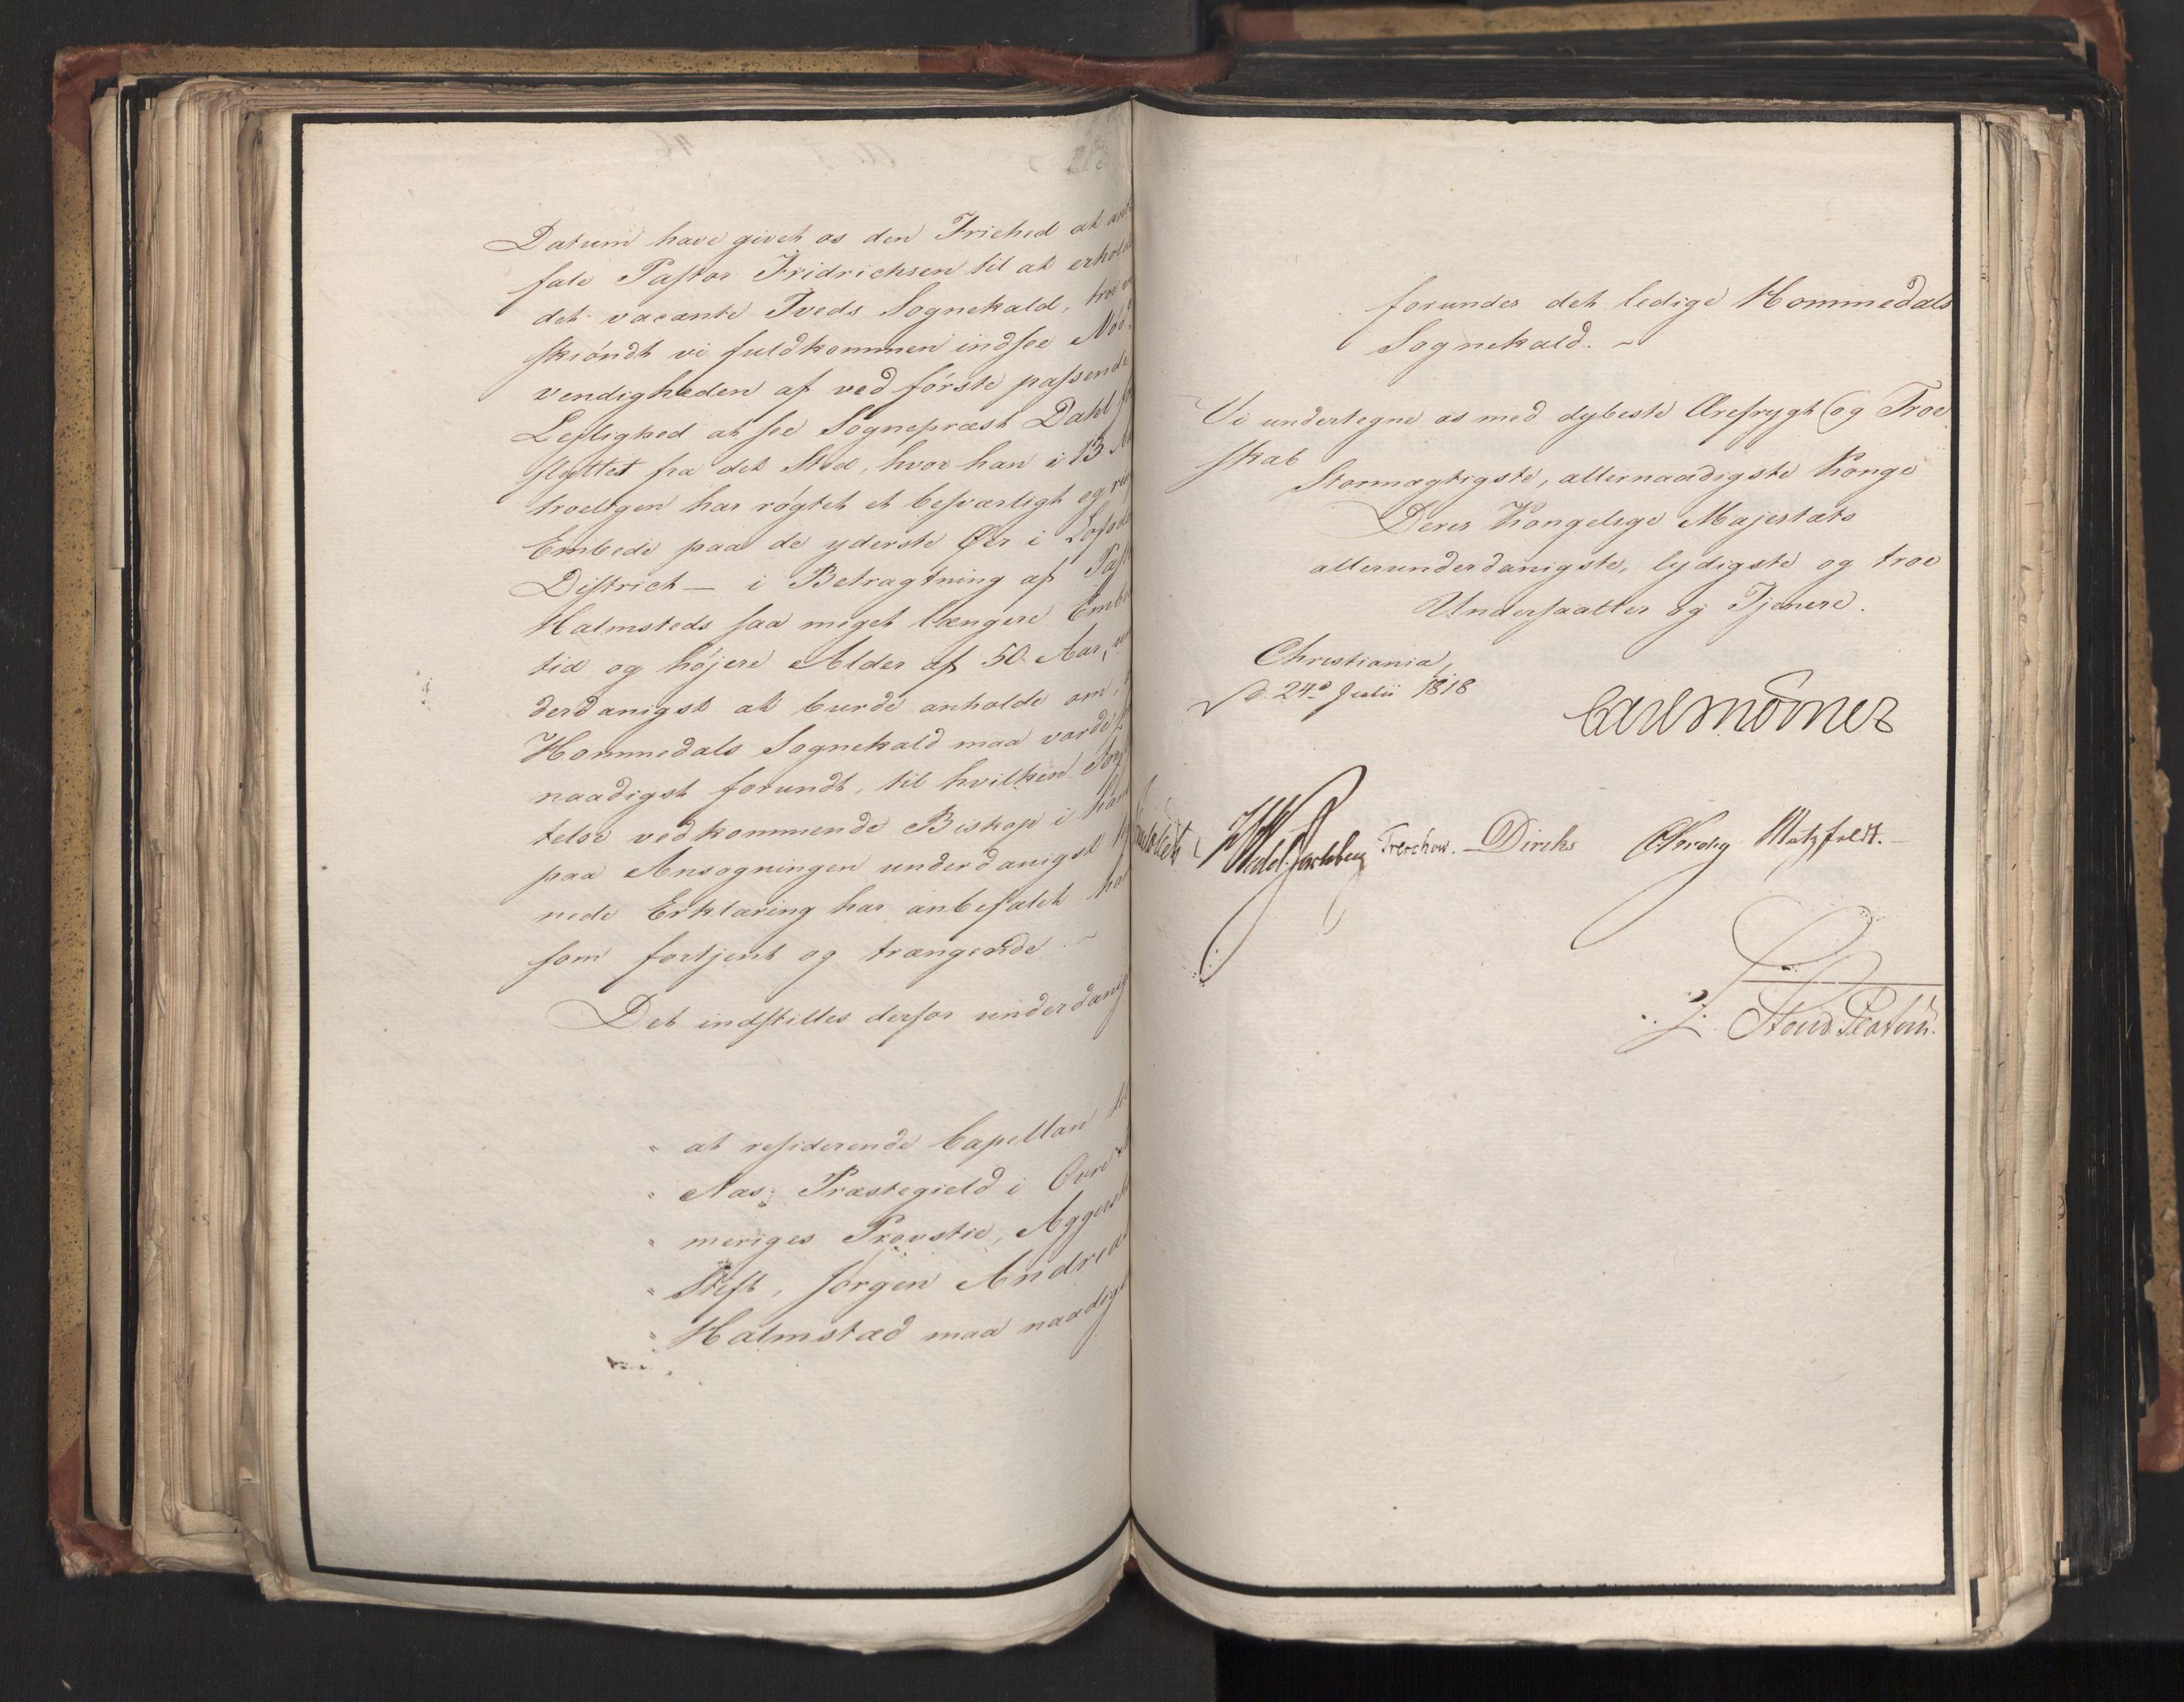 Datum have givet os den Friehed at anbe
fale Pastor Fridrichsen til at erholde
det vacante Tveds Sognekald, troe vi
skiøndt vi fuldkommen indsee Nød
vendigheden af ved første passende
Lejlighed at see Sognepræst Dahl for
flyttet fra det Sted, hvor han i 13 Aar
troeligen har røgtet et besværligt og
Embede paa de yderste Øer i Lofodens
District — i Betragtning af Past
Halmsteds saa meget længere Embeds
tid og højere Alder af 50 Aar, un
derdanigst at burde anholde om at
Hommedals Sognekald maa vorde
naadigst forundt, til hvilken
telse vedkommende Biskop i hans
paa Ansøgningen underdanigst
nede Erklæring har anbefalet ham
som fortjent og trængende. ~
Det indstilles derfor underdanig
" at residerende Capellan til
" Næs Præstegield i Øvre Ro
" meriges Provstie, Aggershuus
" Stift, Jørgen Andreas
" Halmstæd maa naadigst
forundes det ledige Hommedals
Sognekald. ~
Vi undertegne os med dybeste Ærefrygt og Troe
skab
Stormægtigste, allernaadigste Konge
Deres Kongelige Majestæts
allerunderdanigste, lydigste og troe
Undersaatter og Tjenere.
Christiania,
d. 24d Julii 1818
Carl Mörner
Wedel Jarlsberg Treschow. Diriks Motzfeldt.